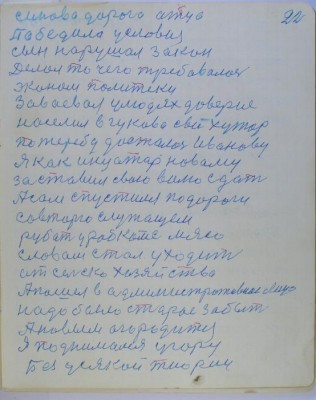 22
синова дорога атца
Победила условия
сын нарушал закон
Делол то чего требовалас
эконом политики
Заваевал улюдях доверие
населил в гукова свой хутор
по жеребу досталас Иванову
Я как иницатар новаму
заставил свою волю сдат
Асам спустилса по дороги
совторго служащем
рубат уробкопе мясо
словом стал уходить
от селско хозяйства
Апошол в административное лицо
надо было старое забыт
Ановым огородитца
Я поднималса угору
Без усякой тиории